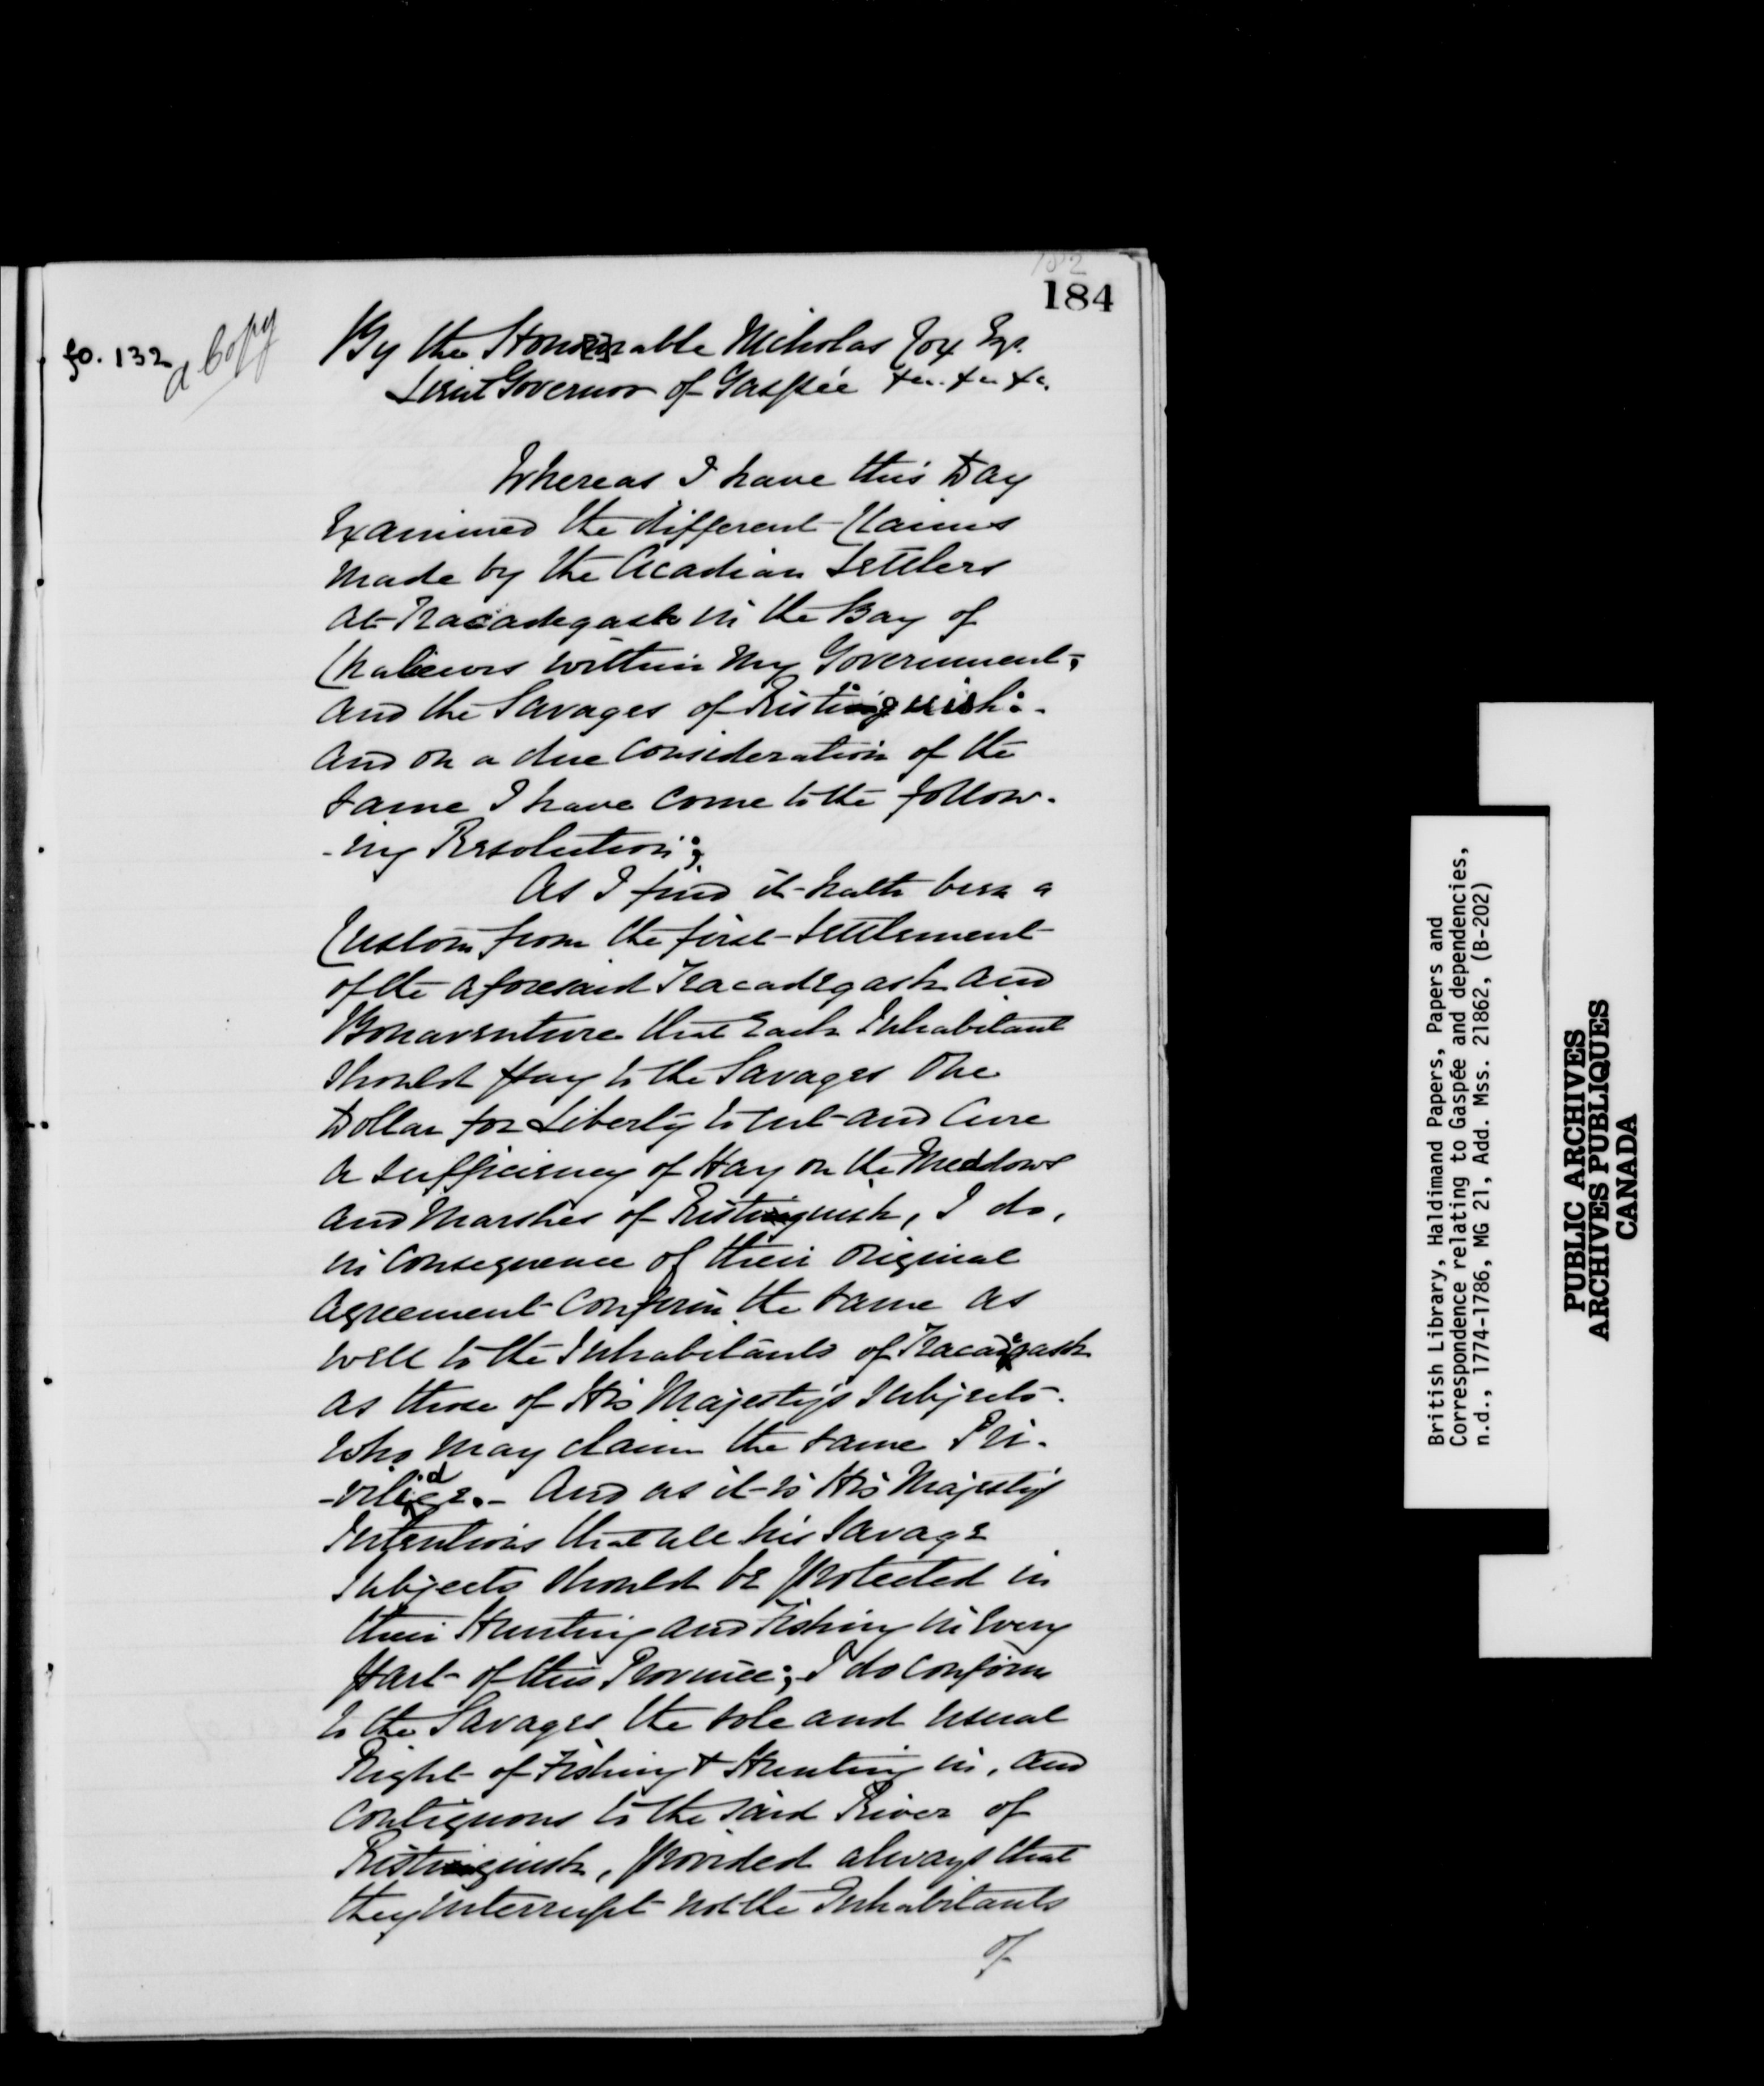 182
184
fo. 132
a Copy
By the Honourable Nicholas Cox Esqr.
Lieut Governor of Gaspée &c. &c &c.
Whereas I have this Day
Examined the different Claims
made by the Acadian Settlers
at Tracadegash in the Bay of
Chaleurs within my Government;
and the Savages of Ristiguish:-
and on a due Consideration of the
same I have come to the follow-
-ing Resolution;
As I find it hath been a
Custom from the first Settlement
of the aforesaid Tracadegash and
Bonaventure that Each Inhabitant
should pay to the Savages One
Dollar for Liberty to Cut and Cure
a sufficiency of Hay on the Meddows
and Marshes of Ristiguish, I do,
in Consequence of their Original
Agreement Confirm the same as
well to the Inhabitants of Tracadigash
as those of His Majesty's Subjects
who may claim the same Pri-
-vilidge.- And as it is His Majesty's
Intentions that all his Savage
Subjects should be protected in
their Hunting and Fishing in Every
part of this Province; I do Confirm
to the Savages the sole and usual
Right of Fishing & Hunting in, and
Contiguous to the said River of
Ristiguish, provided always that
they interrupt not the Inhabitants
of
British Library, Haldimand Papers, Papers and
Correspondence relating to Gaspée and dependencies,
n.d., 1774-1786, MG 21, Add. Mss. 21862, (B-202)
PUBLIC ARCHIVES
ARCHIVES PUBLIQUES
CANADA